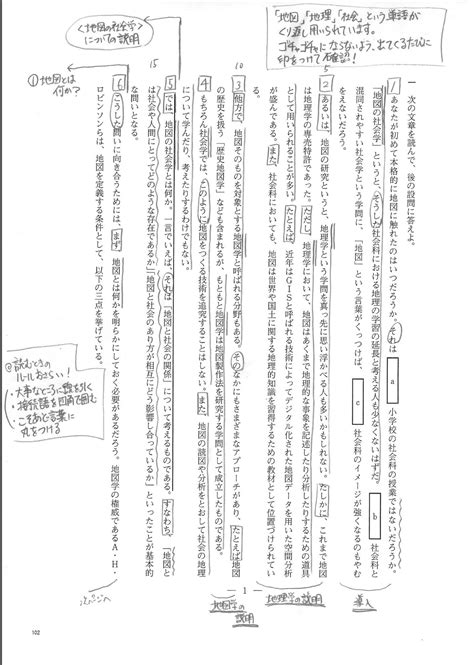 「地図」「地理」「社会」という単語が
くり返し用いられています。
ゴチャゴチャにならないよう、出てくるたびに
印をつけて確認!
一 次の文章を読んで、後の設問に答えよ。
1 あなたが初めて本格的に地図に触れたのはいつだろうか。それは a 小学校の社会科の授業ではないだろうか。
「地図の社会学」というと、そうした社会科における地理の学習の延長と考える人も少なくないはずだ。 b 社会科と
混同されやすい社会学という学問に、「地図」という言葉がくっつけば、 c 社会科のイメージが強くなるのもやむ
をえないだろう。
2 あるいは、地図の研究というと、地理学という学問を真っ先に思い浮かべる人も多いかもしれない。たしかに、これまで地図
は地理学の専売特許であった。ただし、地理学において、地図はあくまで地理的な事象を記述したり分析したりするための道具
として用いられることが多い。たとえば、近年はGISと呼ばれる技術によってデジタル化された地図データを用いた空間分析
が盛んである。また、社会科においても、地図は世界や国土に関する地理的知識を習得するための教材として位置づけられてい
る。
3 他方で、地図そのものを対象とする地図学と呼ばれる分野もある。そのなかにもさまざまなアプローチがあり、たとえば地図
の歴史を扱う「歴史地図学」なども含まれるが、もともと地図学は地図製作法を研究する学問として成立したものである。
4 もちろん社会学では、このように地図をつくる技術を追究することはしない。また、地図の読図や分析をとおして社会の地理
について学んだり、考えたりするわけでもない。
5 では、地図の社会学とは何か。一言でいえば、それは「地図と社会の関係」について考えるものである。すなわち、「地図と
は社会や人間にとってどのような存在であるか」「地図と社会のあり方が相互にどう影響し合っているか」といったことが基本的
な問いとなる。
6 こうした問いに向き合うためには、まず、地図とは何かを明らかにしておく必要があるだろう。地図学の権威であるA・H・
ロビンソンらは、地図を定義する条件として、以下の三点を挙げている。
5
10
15
〈地図の社会学〉
についての説明
①地図とは
何か?
◎読むときの
ルールおさらい!
・大事なところに線を引く
・接続語を四角で囲む
・こそあど言葉に
丸をつける
導入
地理学の説明
地図学の
説明
次ページへ
— 1 —
102